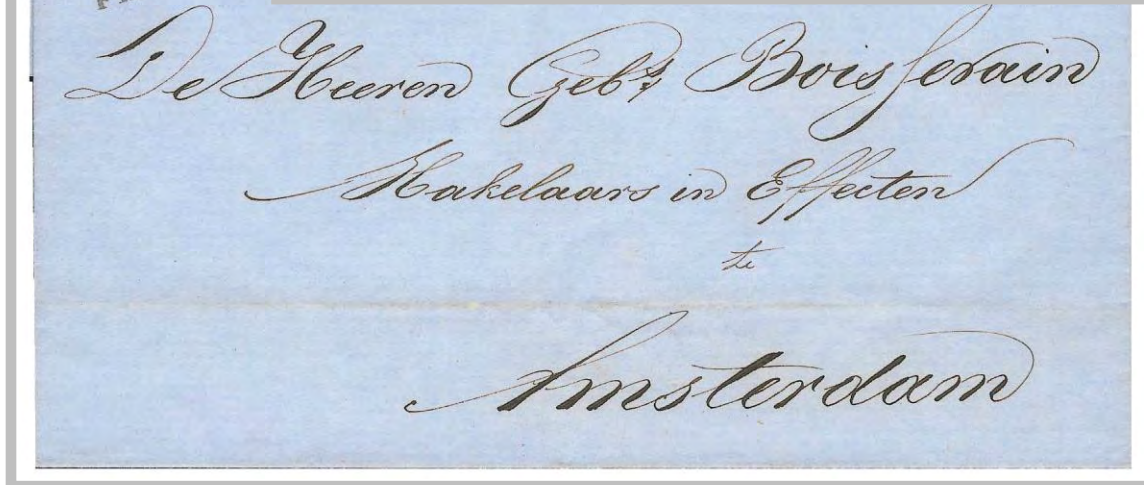 De Heeren Gebs. Boissevain
Makelaars in Effecten
te
Amsterdam